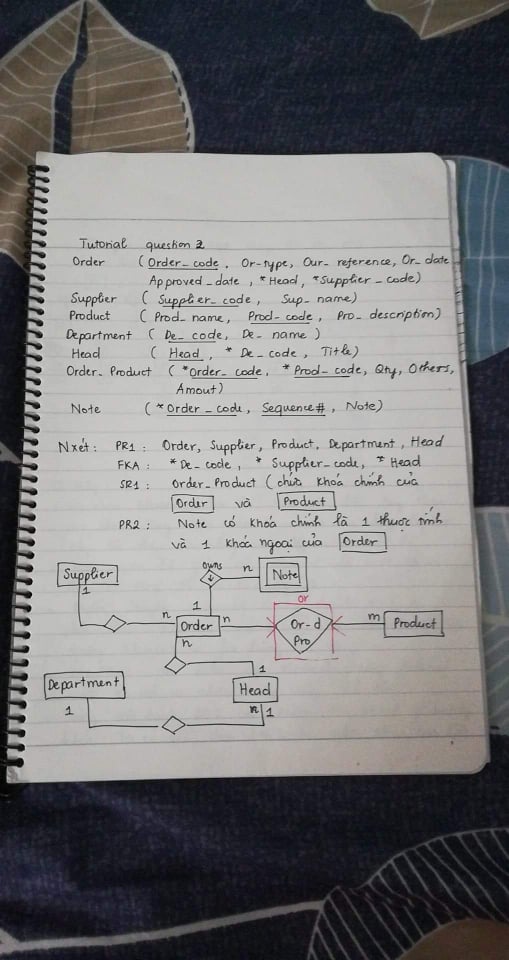 Tutorial question 2
Order ( Order_code, Or-type, Our-reference, Or_date
Approved_date, *Head, *Supplier_code)
Supplier ( Supplier_code, Sup_name)
Product ( Prod_name, Prod-code, Pro_description)
Department ( De_code, De_name )
Head ( Head, * De_code, Title)
Order_Product ( *Order_code, *Prod-code, Qty, Others,
Amout)
Note (*Order_code, Sequence#, Note)
Nxét: PR1: Order, Supplier, Product, Department, Head
FKA: *De_code, * Supplier_code, * Head
SR1: Order_Product ( chứa khoá chính của
Order và Product
PR2: Note có khoá chính là 1 thuộc tính
và 1 khoá ngoại của Order
owns n Note
Supplier
1
1 or
n Order n Or-d Pro m Product
n
1
Department Head
1 n 1